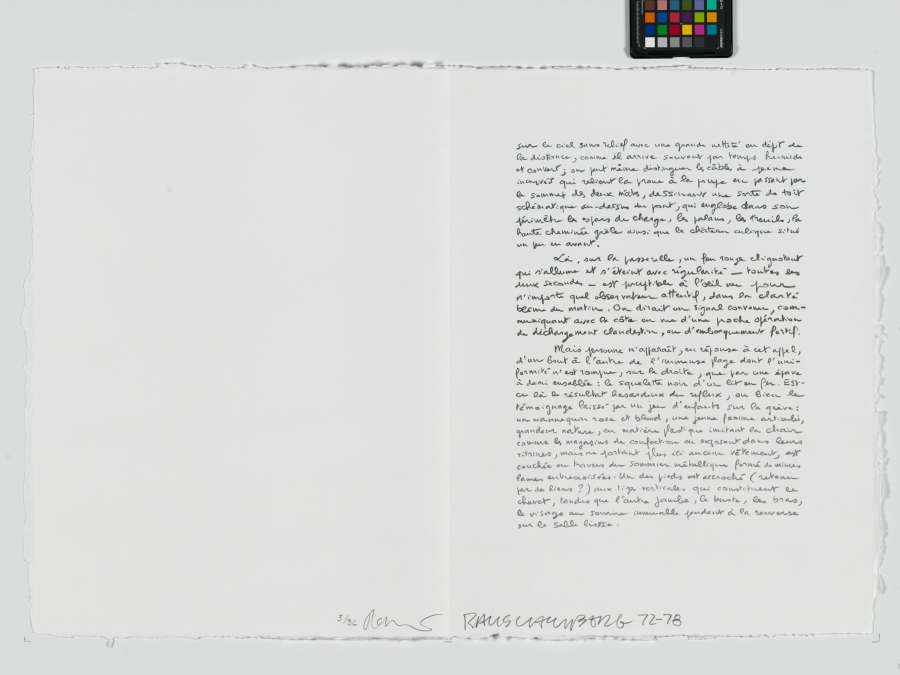 sur le ciel sans relief avec une grande netteté en dépit de
la distance, comme il arrive souvent par temps humide
et couvert; on peut même distinguer le câble à peine
incurvé qui relient la proue à la poupe en passant par
le sommet des deux mâts, dessinant une sorte de toit
schématique au-dessus du pont, qui englobe dans son
périmètre les espars de charge, les palans, les treuils, la
haute cheminée grêle ainsi que le château cubique situé
un peu en avant.
Là, sur la passerelle, un feu rouge clignotant
qui s'allume et s'éteint avec régularité — toutes les
deux secondes — est perceptible à l'œil nu pour
n'importe quel observateur attentif, dans la clarté
blême du matin. On dirait un signal convenu, com-
muniquant avec la côte en vue d'une proche opération
de déchargement clandestin, ou d'embarquement furtif.
Mais personne n'apparaît, en réponse à cet appel,
d'un bout à l'autre de l'immense plage dont l'uni-
formité n'est rompue, sur la droite, que par une épave
à demi ensablée: le squelette noir d'un lit en fer. Est-
ce là le résultat hasardeux du reflux, ou bien le
témoignage laissé par un jeu d'enfants sur la grève:
un mannequin rose et blond, une jeune femme articulée,
grandeur nature, en matière plastique imitant la chair
comme les magasins de confection en exposent dans leurs
vitrines, mais ne portant plus ici aucun vêtement, est
couchée en travers du sommier métallique formé de minces
lames entrecroisées. Un des pieds est accroché (retenu
par des liens?) aux tiges verticales qui constituent le
chevet, tandis que l'autre jambe, le buste, les bras,
le visage au sourire immuable pendent à la renverse
sur le sable lisse.
RAUSCHENBERG 72-78